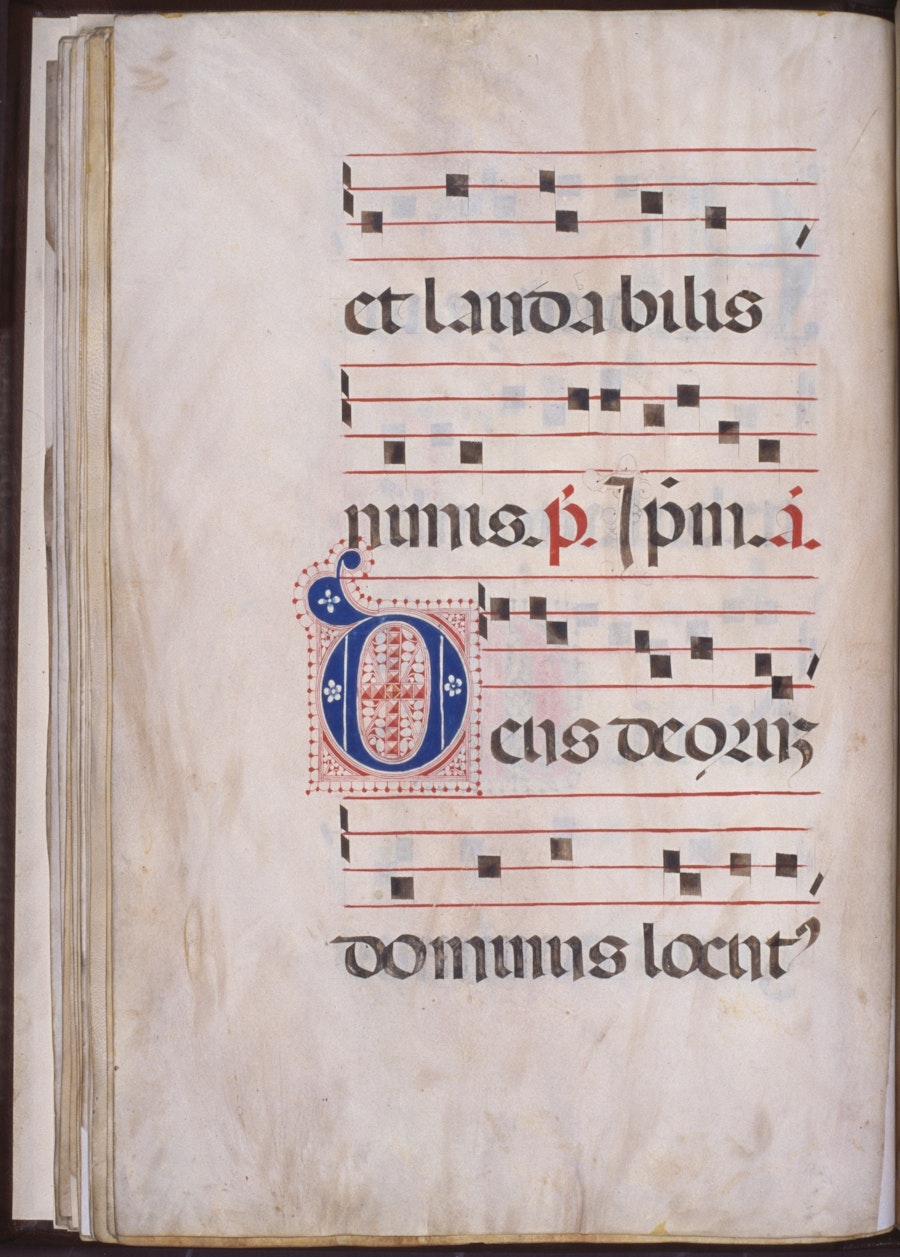 et laudabilis
nimis. ṕ. Iṕm. á.
Deus deoruʒ
dominus locutꝰ